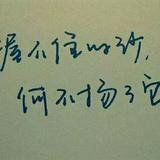 握不住的沙，
何不扬了它